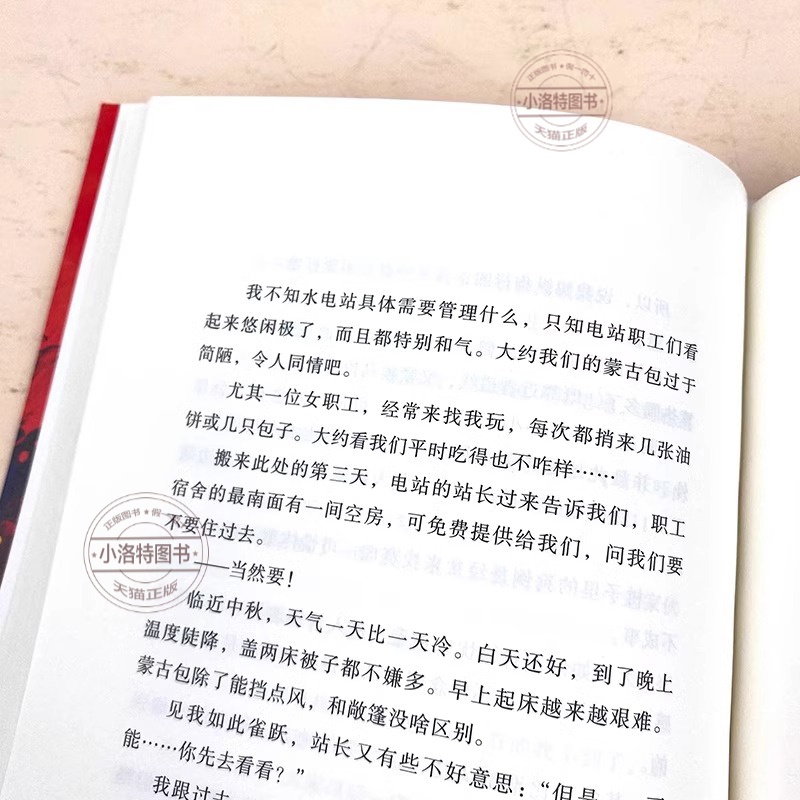 正版图书★假一罚十
小洛特图书
天猫正版
我不知水电站具体需要管理什么，只知电站职工们看
起来悠闲极了，而且都特别和气。大约我们的蒙古包过于
简陋，令人同情吧。
尤其一位女职工，经常来找我玩，每次都捎来几张油
饼或几只包子。大约看我们平时吃得也不咋样……
搬来此处的第三天，电站的站长过来告诉我们，职工
宿舍的最南面有一间空房，可免费提供给我们，问我们要
不要住过去。
——当然要！
临近中秋，天气一天比一天冷。白天还好，到了晚上
温度陡降，盖两床被子都不嫌多。早上起床越来越艰难。
蒙古包除了能挡点风，和敞篷没啥区别。
见我如此雀跃，站长又有些不好意思：“但是
能……你先去看看？”
我跟过去
正版图书★假一罚十
小洛特图书
天猫正版